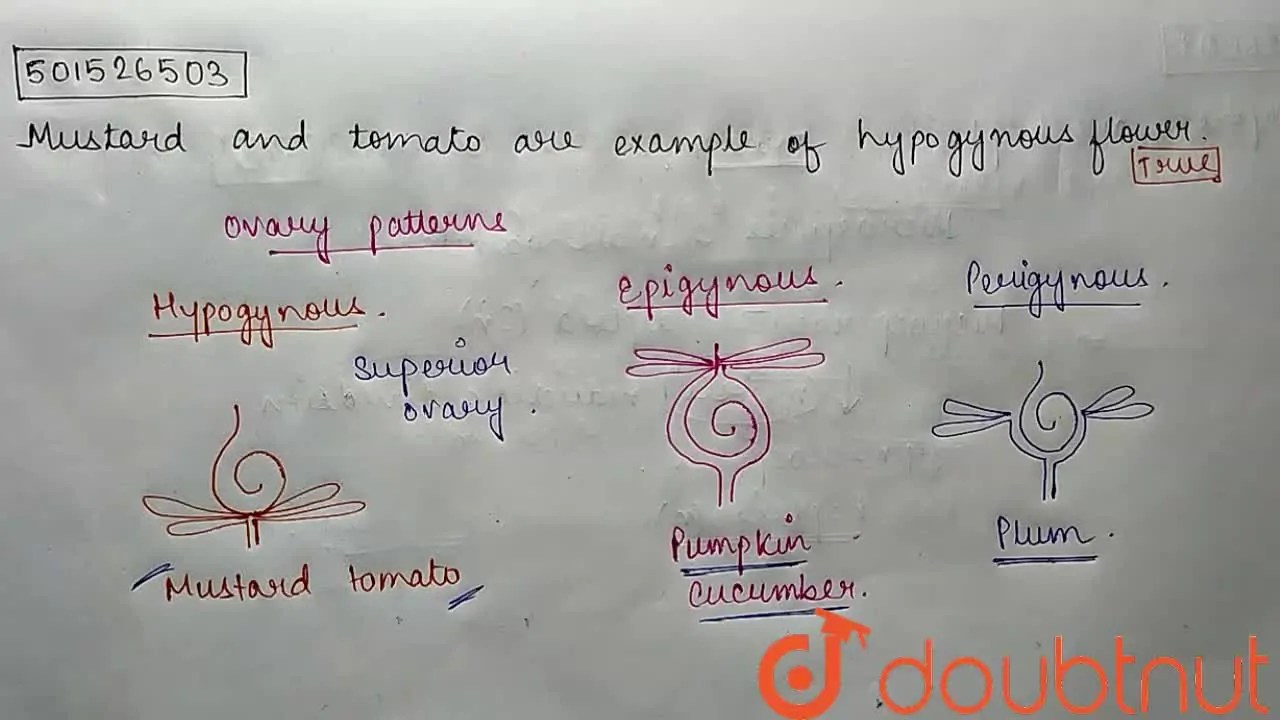 501526503
Mustard and tomato are example of hypogynous flower.
True
ovary patterns
Hypogynous.
Epigynous.
Perigynous.
Superior
ovary.
Mustard tomato
Pumpkin
cucumber.
Plum.
doubtnut